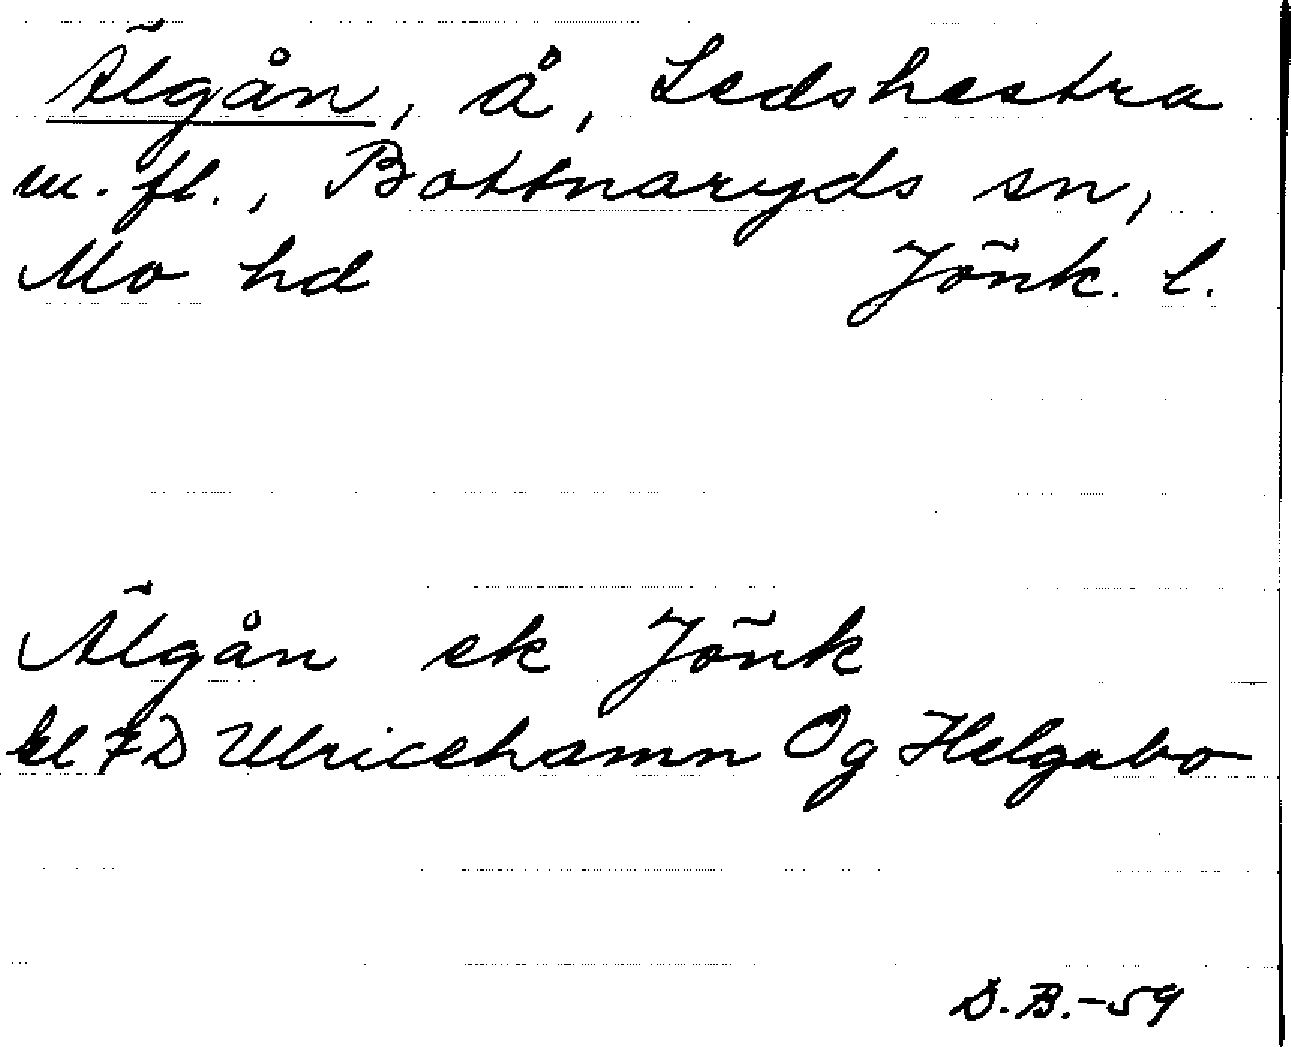 Älgån, å, Ledshestra
m. fl., Bottnaryds sn,
Mo hd Jönk. l.
Älgån ek Jönk
bl 7D Ulricehamn Og Helgabo
D.B.-59